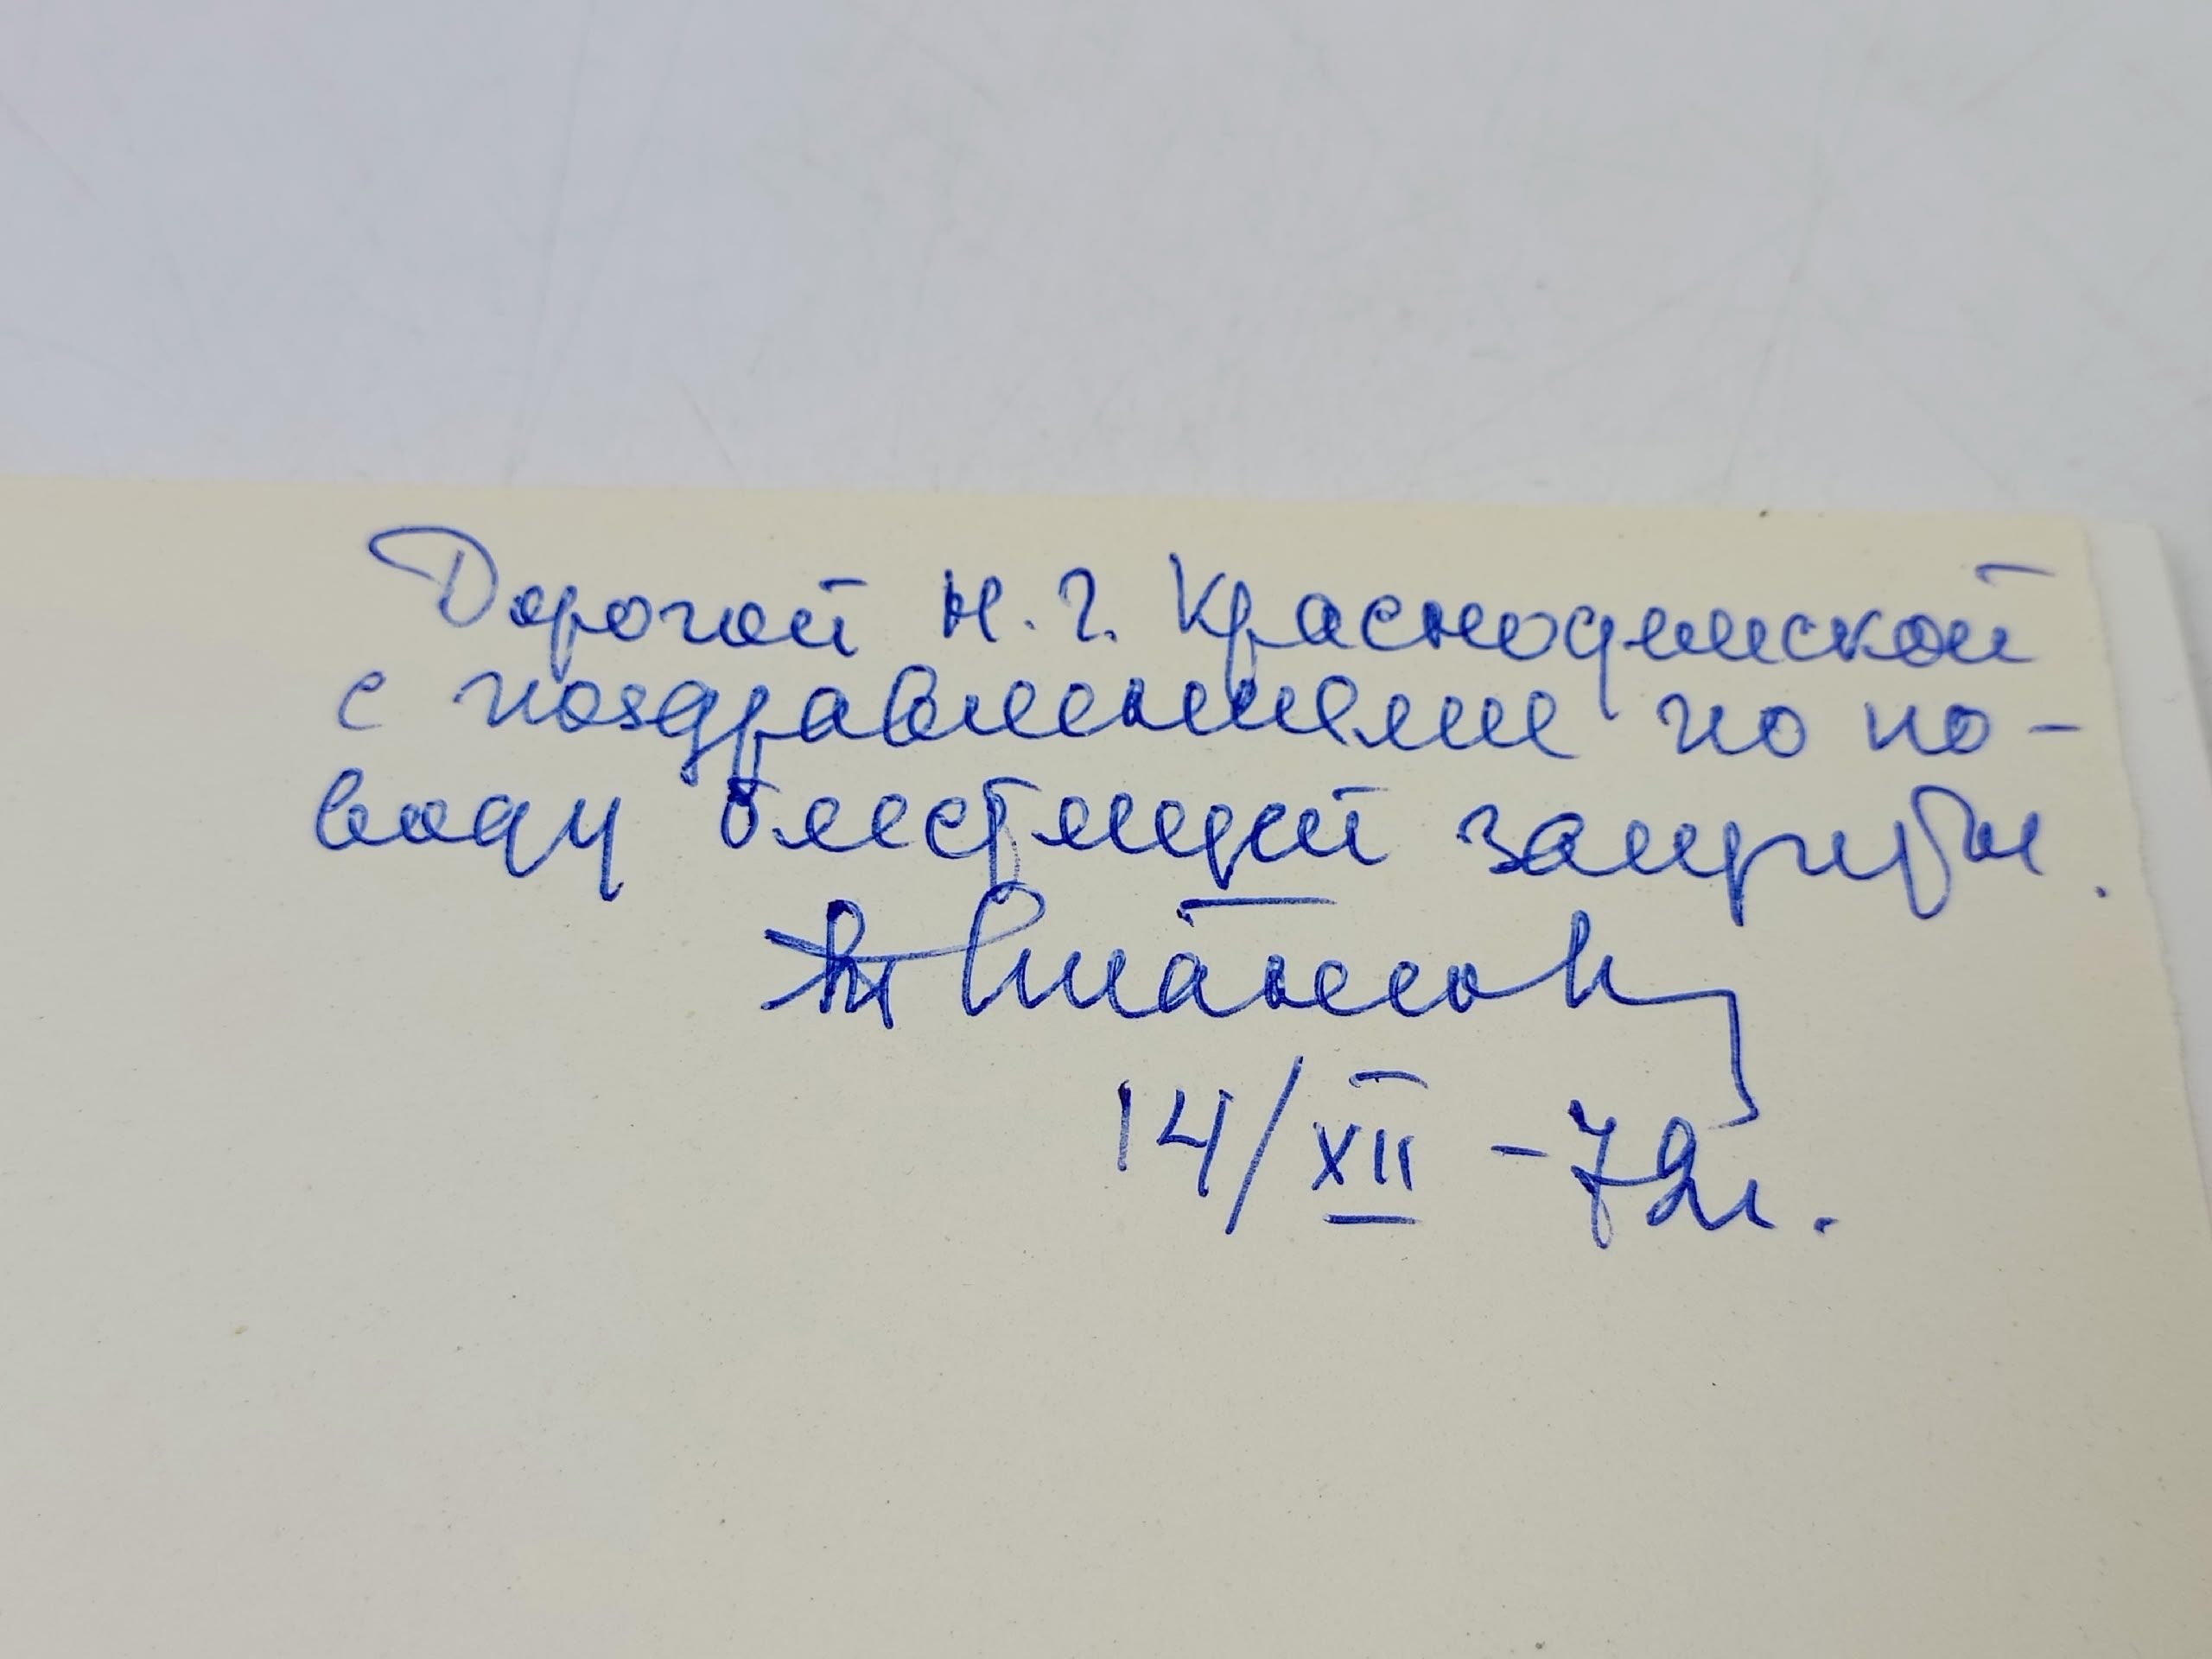 Дорогой Н. Г. Краснодемской
с поздравлением по по-
воду блестящей защиты.
14/XII - 72 г.